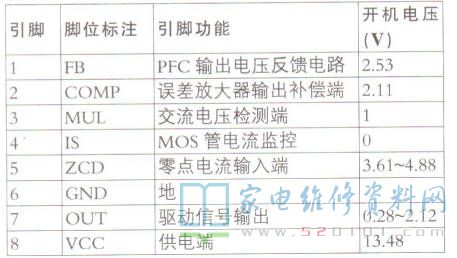 引脚 脚位标注 引脚功能 开机电压(V)
1 FB PFC 输出电压反馈电路 2.53
2 COMP 误差放大器输出补偿端 2.11
3 MUL 交流电压检测端 1
4 IS MOS 管电流监控 0
5 ZCD 零点电流输入端 3.61~4.88
6 GND 地
7 OUT 驱动信号输出 0.28~2.12
8 VCC 供电端 13.48
家电维修资料网
www.520101.com